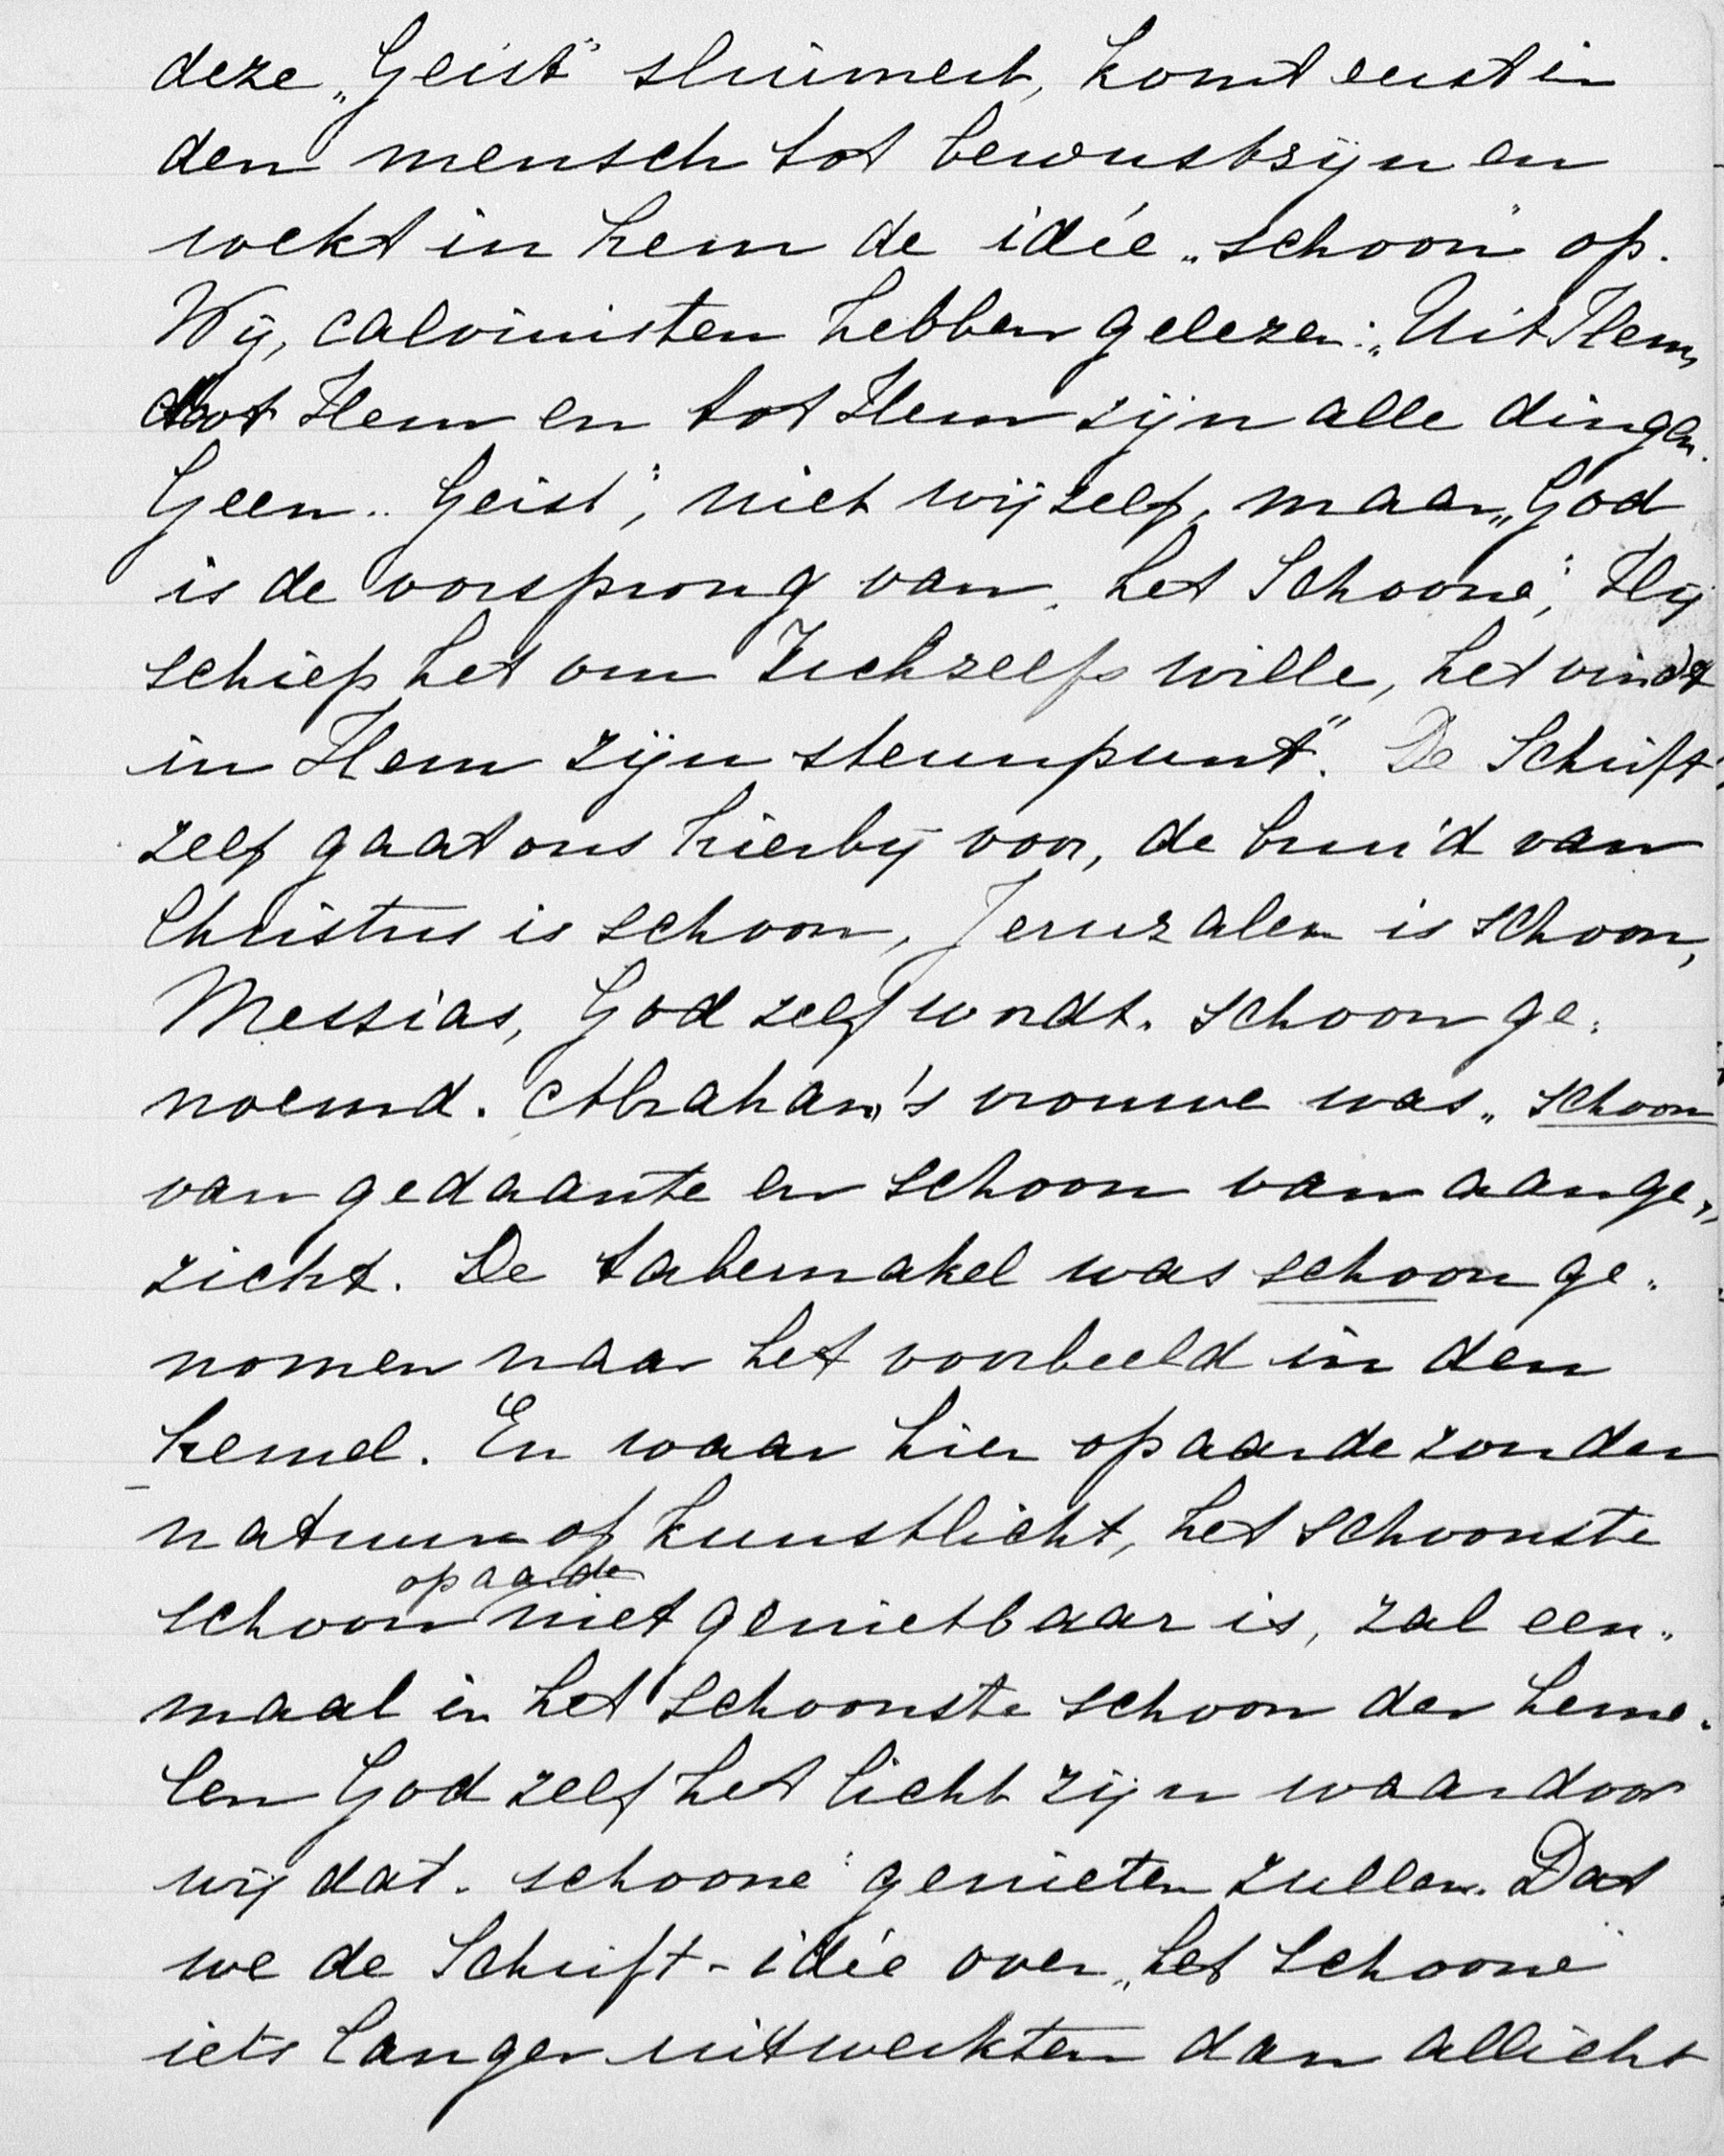 deze „Geist” sluimert, komt eerst in
den mensch tot bewustzijn en
wekt in hem de idée „schoon” op.
Wij, calvinisten hebben gelezen: „Uit Hem,
door Hem en tot Hem zijn alle dingen.
Geen „Geist”, niet wijzelf, maar „God
is de oorsprong van „het Schoone”, Hij
schiep het om Zichzelfs wille, het vindt
in Hem zijn steunpunt”. De Schrift
zelf gaat ons hierbij voor, de bruid van
Christus is schoon, Jeruzalem is schoon,
Messias, God zelf wordt „schoon ge„
noemd. Abraham's vrouwe was „schoon
van gedaante en schoon van aange„
zicht. De tabernakel was schoon ge„
nomen naar het voorbeeld in den
hemel. En waar hier op aarde zonder
natuur of kunstlicht, het schoonste
op aarde
schoon niet genietbaar is, zal een„
maal in het schoonste schoon der heme„
len God zelf het licht zijn waardoor
wij dat „schoone” genieten zullen. Dat
we de Schrift-idée over „het schoone”
iets langer uitwerkten dan allicht